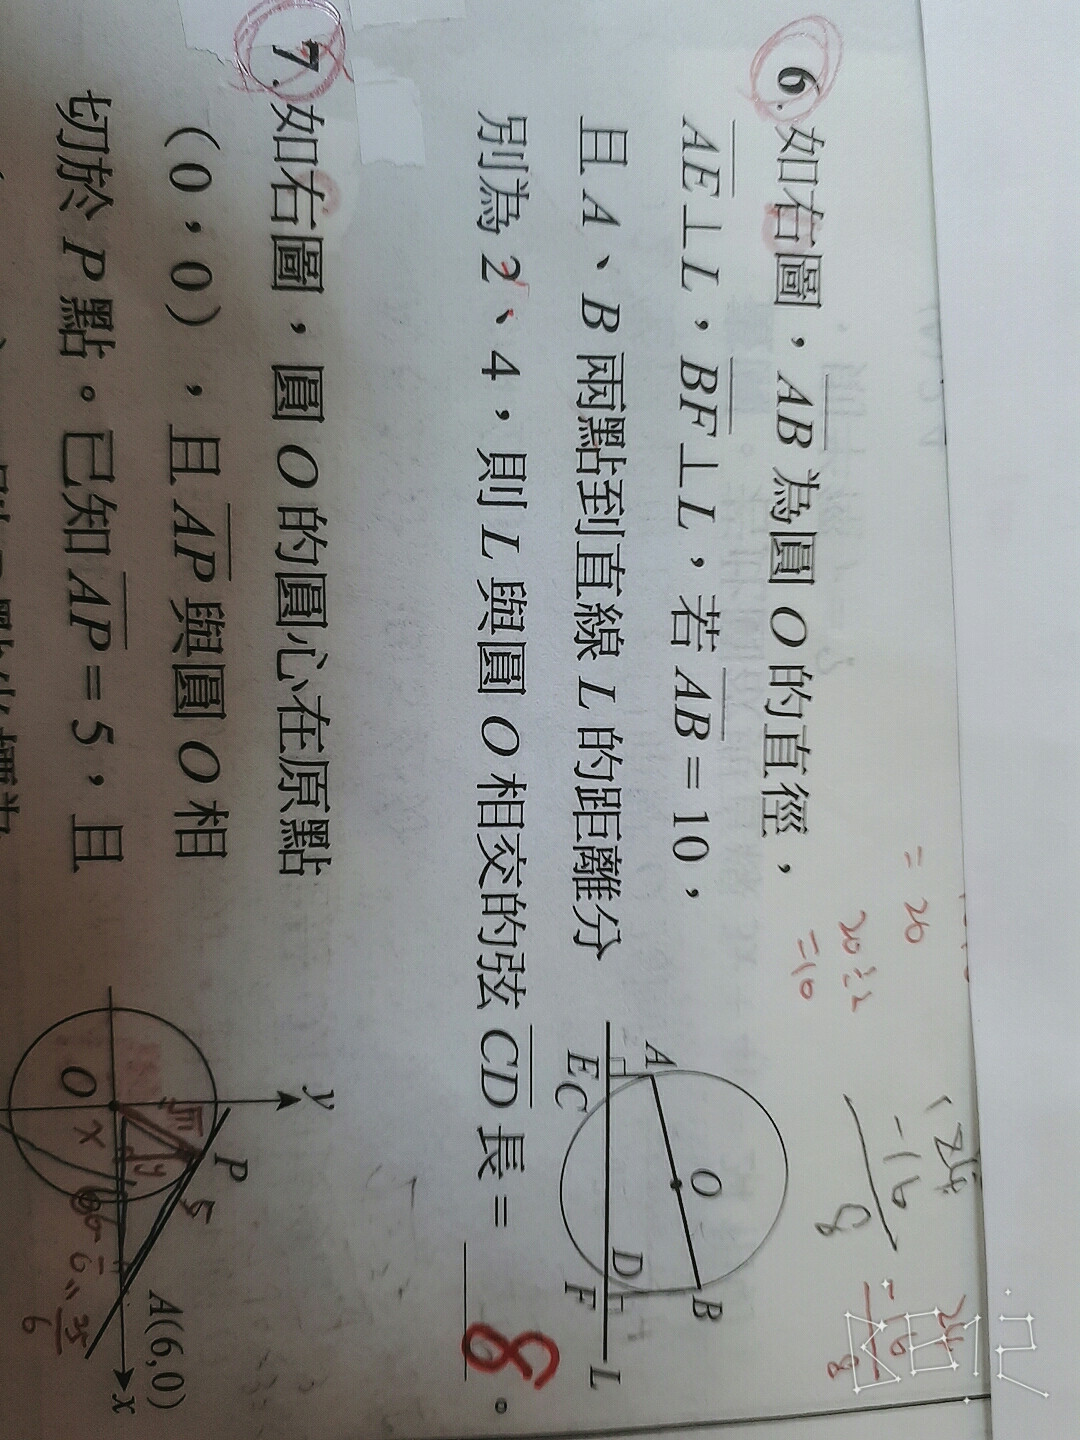 6. 如右圖，AB 為圓 O 的直徑，
AE⊥L，BF⊥L，若 AB = 10，
且 A、B 兩點到直線 L 的距離分
別為 2、4，則 L 與圓 O 相交的弦 CD 長 = 8 。
A
O
B
E
C
D
F
L
= 20
20÷2
=10
7. 如右圖，圓 O 的圓心在原點
(0，0)，且 AP 與圓 O 相
切於 P 點。已知 AP = 5，且
y
P
5
√11
O
x
A(6,0)
x
25
6